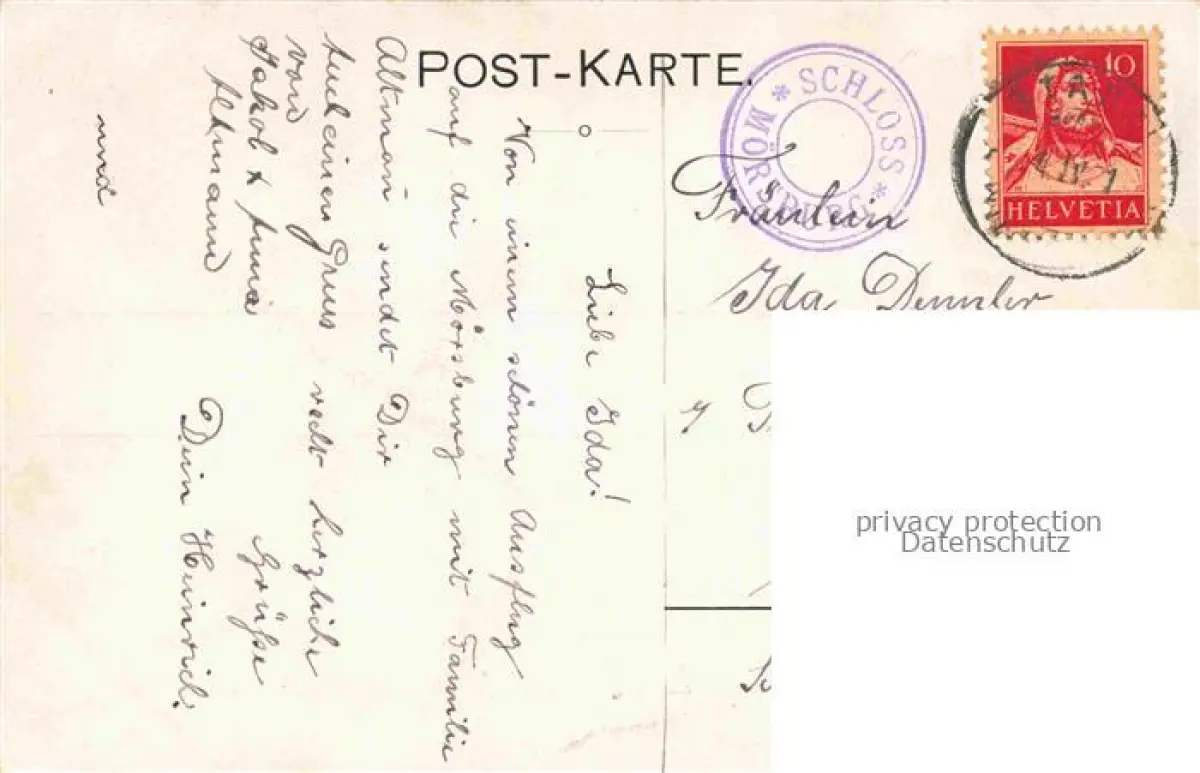 POST-KARTE.
* SCHLOSS *
MÖRSBURG
10
HELVETIA
Fräulein
Ida Demuler
Liebe Ida!
Von einem schönen Ausflug
auf die Mörsburg mit Familie
Altman sendet Dir
recht herzliche
Grüsse
Dein Heinrich.
und
Auch einen Gruss
von
Jakob & Anna
Altmann
privacy protection
Datenschutz